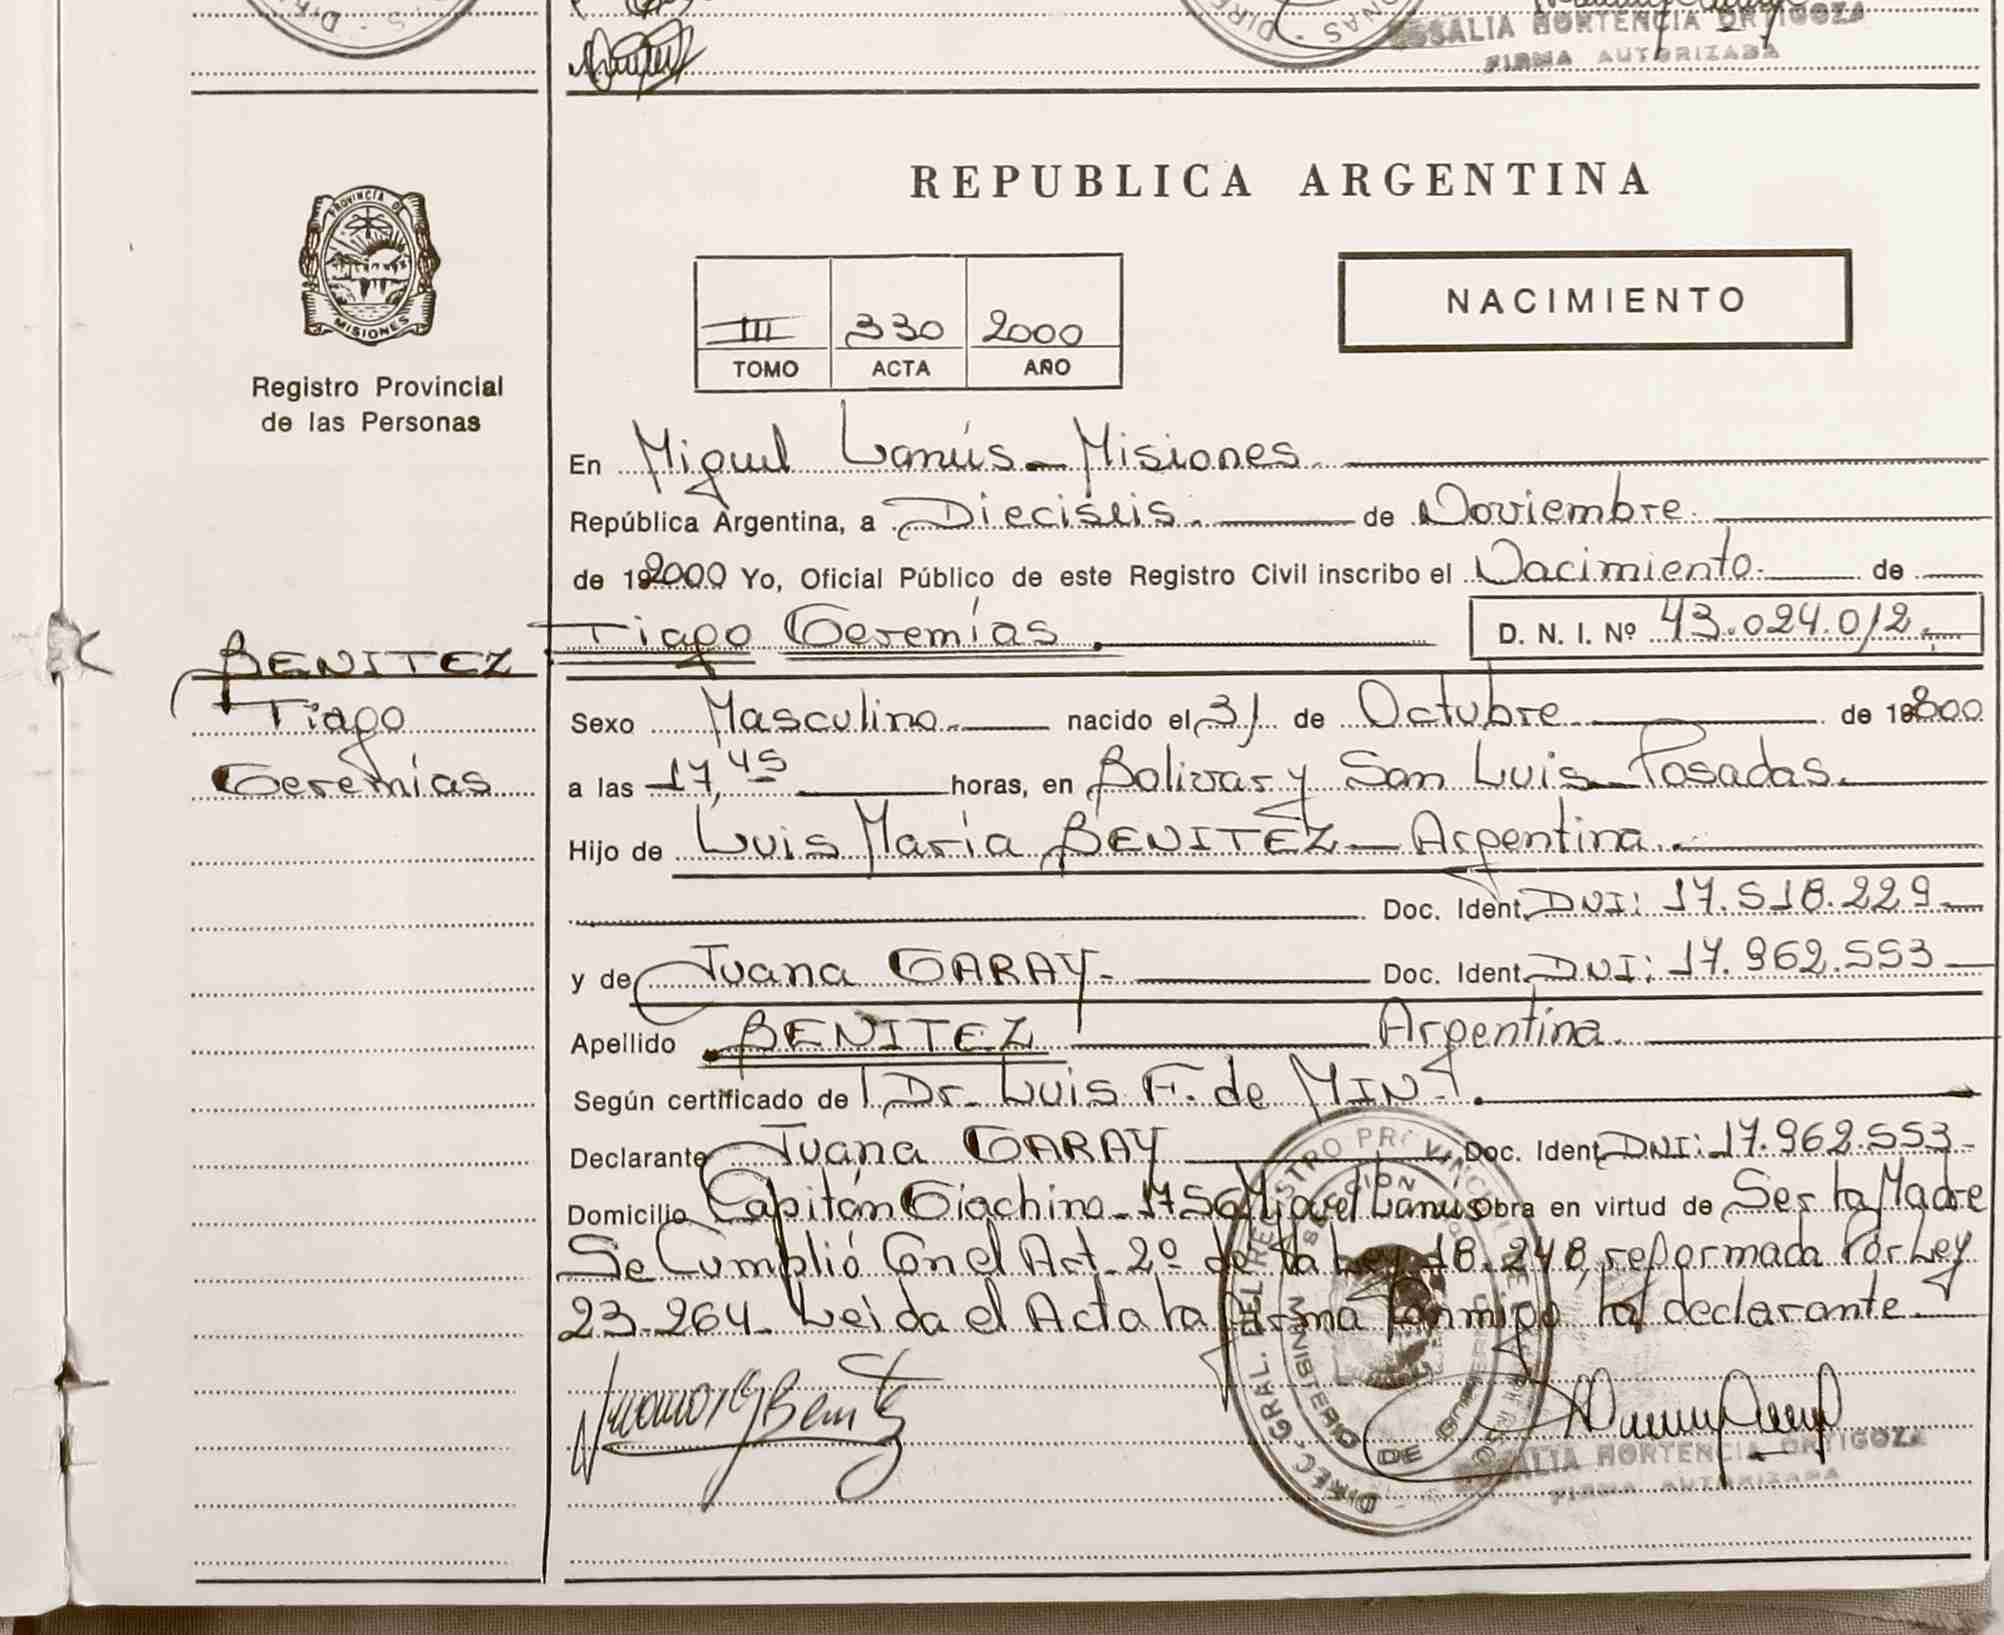 ROSALIA HORTENCIA ORTIGOZA
FIRMA AUTORIZADA
PROVINCIA DE
MISIONES
Registro Provincial
de las Personas
REPUBLICA ARGENTINA
NACIMIENTO
III 330 2000
TOMO ACTA AÑO
En Miguel Lanús - Misiones.
República Argentina, a Dieciseis. de Noviembre.
de 192000 Yo, Oficial Público de este Registro Civil inscribo el Nacimiento. de
Tiago Geremías. D. N. I. Nº 43.024.012.
BENITEZ
Tiago
Geremías
Sexo Masculino. nacido el 31 de Octubre de 192000
a las 17,45 horas, en Bolivar y San Luis - Posadas.
Hijo de Luis María BENITEZ - Argentina.
Doc. Ident. DNI: 17.518.229
y de Juana GARAY - Doc. Ident. DNI: 17.962.553
Apellido BENITEZ Argentina.
Según certificado de Dr. Luis F. de
Declarante Juana GARAY Doc. Ident. DNI: 17.962.553
Domicilio Capitán Giachino - 1756 Miguel Lanus obra en virtud de Ser la Madre
Se Cumplió Con el Art. 2º de la Ley 18.248, reformada Por Ley
23.264 - Leida el Acta la firma Conmigo la declarante.
DIREC. GRAL. DEL REGISTRO PROVINCIAL DE
MINISTERIO DE
ROSALIA HORTENCIA ORTIGOZA
FIRMA AUTORIZADA